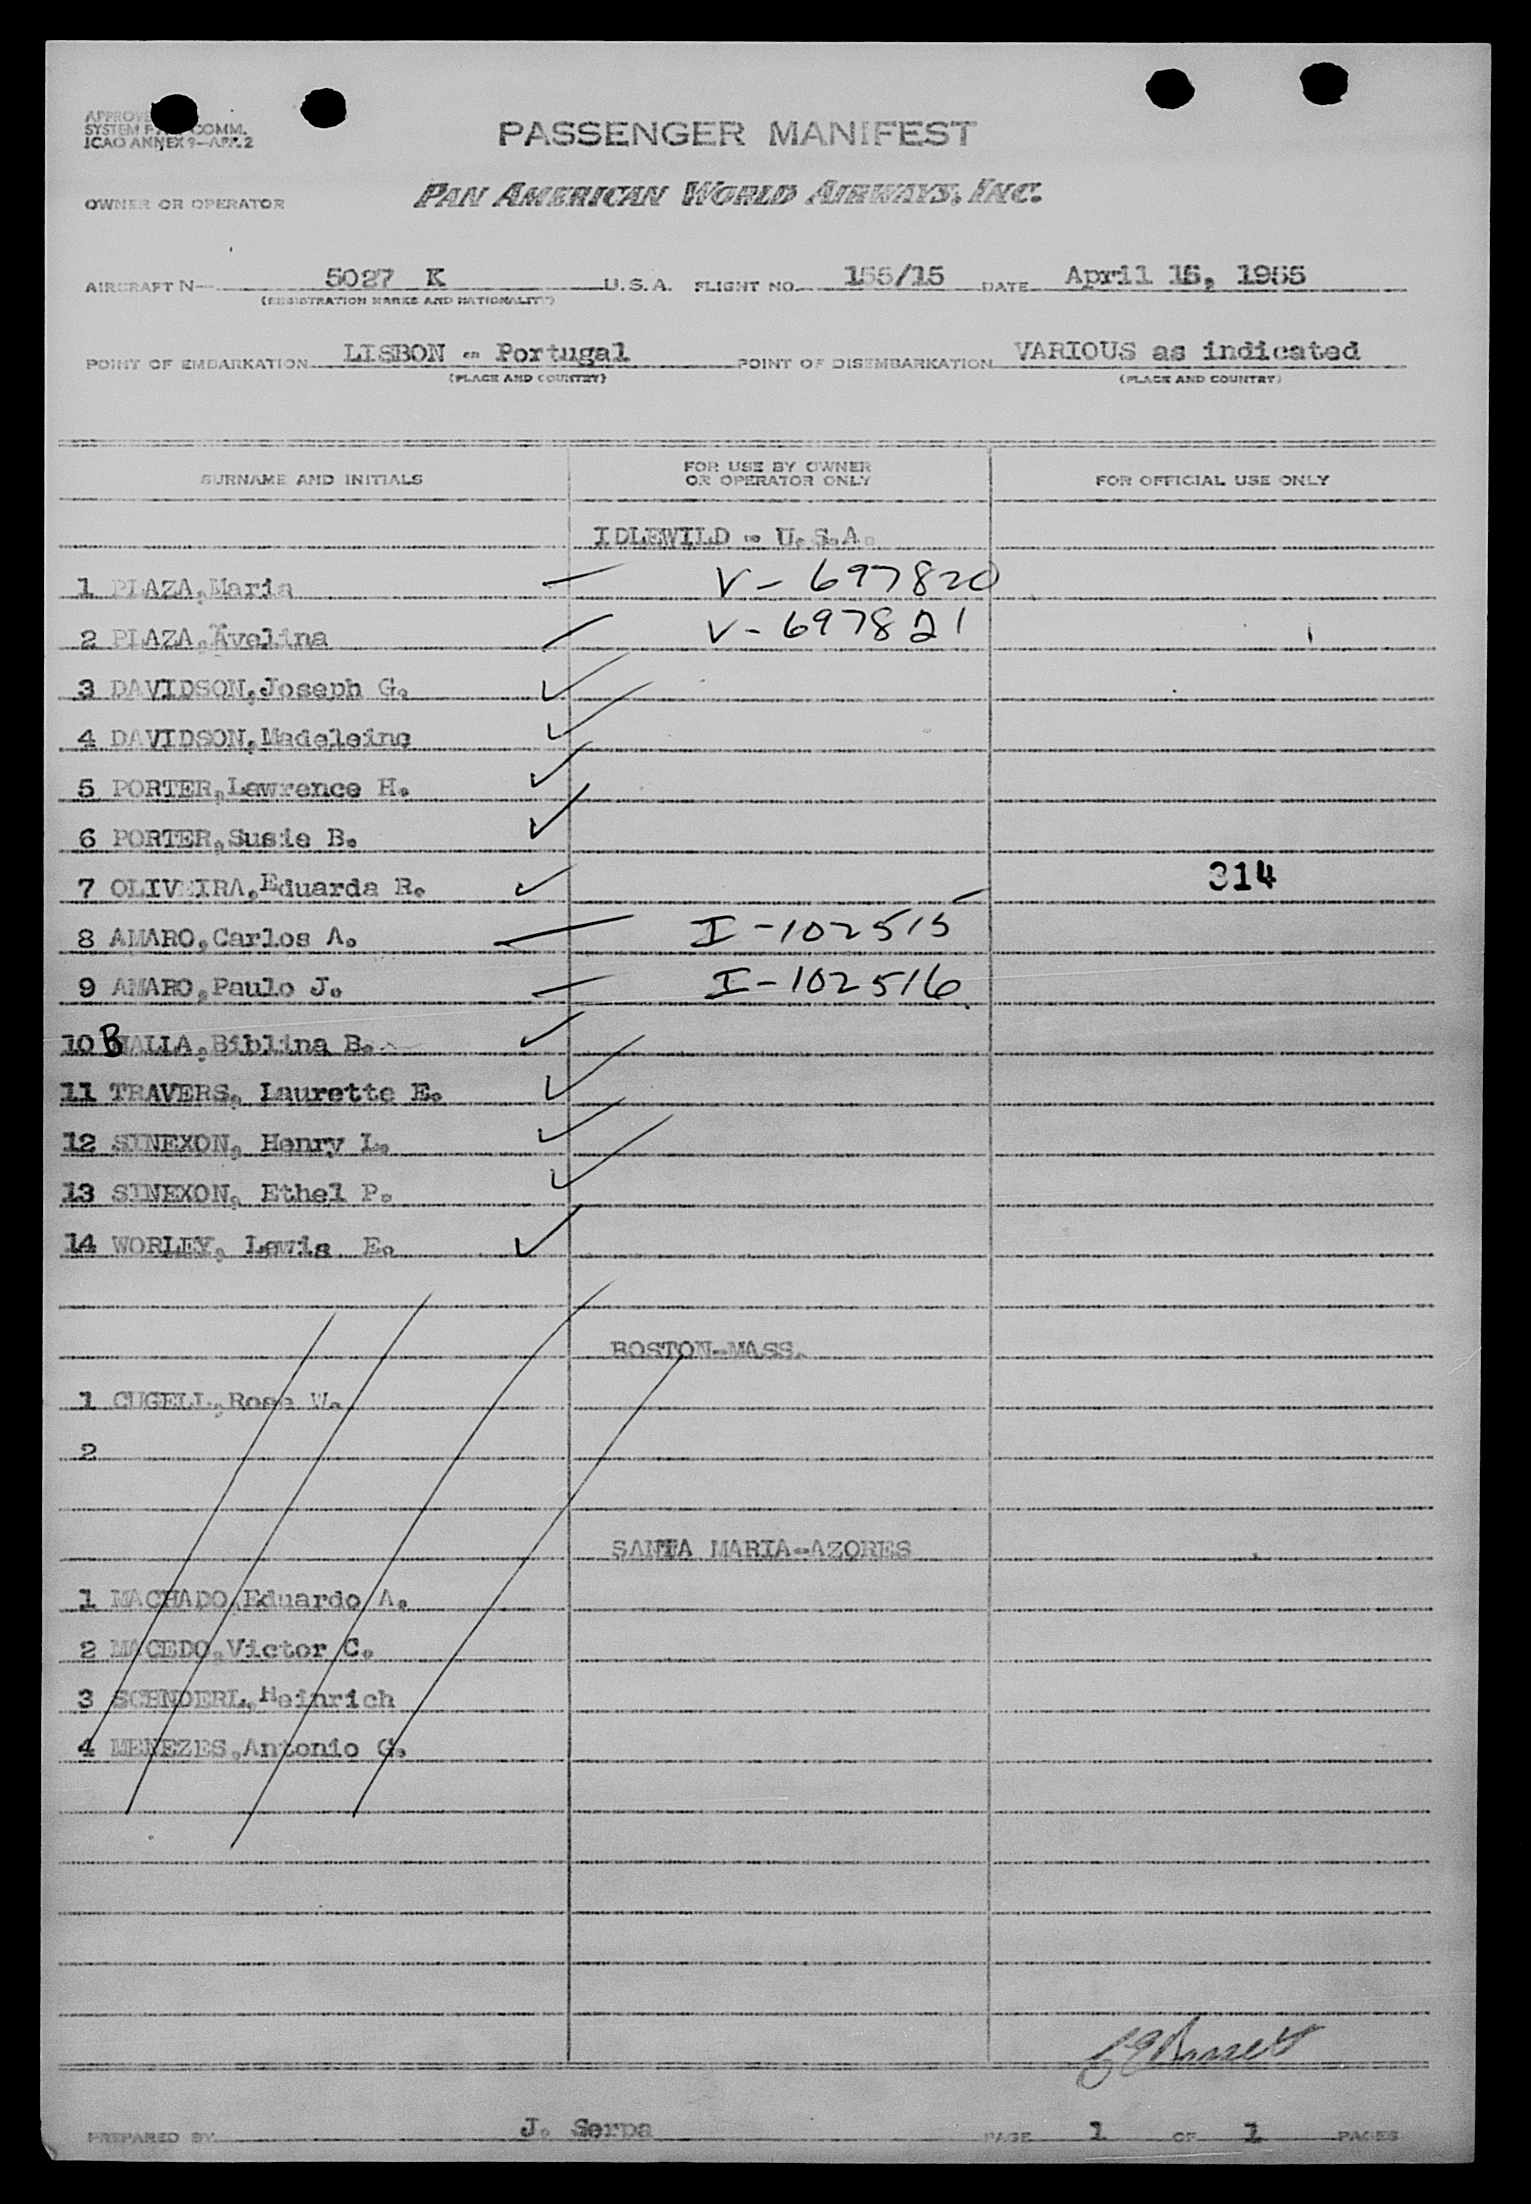 PASSENGER MANIFEST
SYSTEM COMM.
ICAO ANNEX 9—APP. 2
OWNER OR OPERATOR PAN AMERICAN WORLD AIRWAYS, INC.
AIRCRAFT N— 5027 K U.S.A. FLIGHT NO. 155/15 DATE April 15, 1955
(REGISTRATION MARKS AND NATIONALITY)
POINT OF EMBARKATION LISBON - Portugal POINT OF DISEMBARKATION VARIOUS as indicated
(PLACE AND COUNTRY) (PLACE AND COUNTRY)
SURNAME AND INITIALS FOR USE BY OWNER OR OPERATOR ONLY FOR OFFICIAL USE ONLY
IDLEWILD - U.S.A.
1 PLAZA, Maria — V-697820
2 PLAZA, Avelina — V-697821
3 DAVIDSON, Joseph G. ✓
4 DAVIDSON, Madeleine ✓
5 PORTER, Lawrence H. ✓
6 PORTER, Susie B. ✓
7 OLIVEIRA, Eduarda R. ✓ 314
8 AMARO, Carlos A. — I-102515
9 AMARO, Paulo J. — I-102516
10 BALLA, Biblina B. ✓
11 TRAVERS, Laurette E. ✓
12 SINEXON, Henry L. ✓
13 SINEXON, Ethel P. ✓
14 WORLEY, Lewis E. ✓
BOSTON-MASS.
1 CUGELL, Rose W.
2
SANTA MARIA-AZORES
1 MACHADO, Eduardo A.
2 MACEDO, Victor C.
3 SCHNDERL, Heinrich
4 MENEZES, Antonio G.
PREPARED BY J. Serpa PAGE 1 OF 1 PAGES